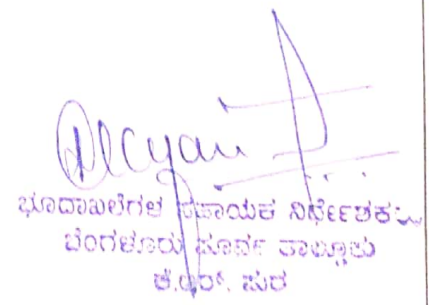 ಭೂದಾಖಲೆಗಳ ಸಹಾಯಕ ನಿರ್ದೇಶಕರು
ಬೆಂಗಳೂರು ಪೂರ್ವ ತಾಲ್ಲೂಕು
ಕೆ.ಆರ್. ಪುರ